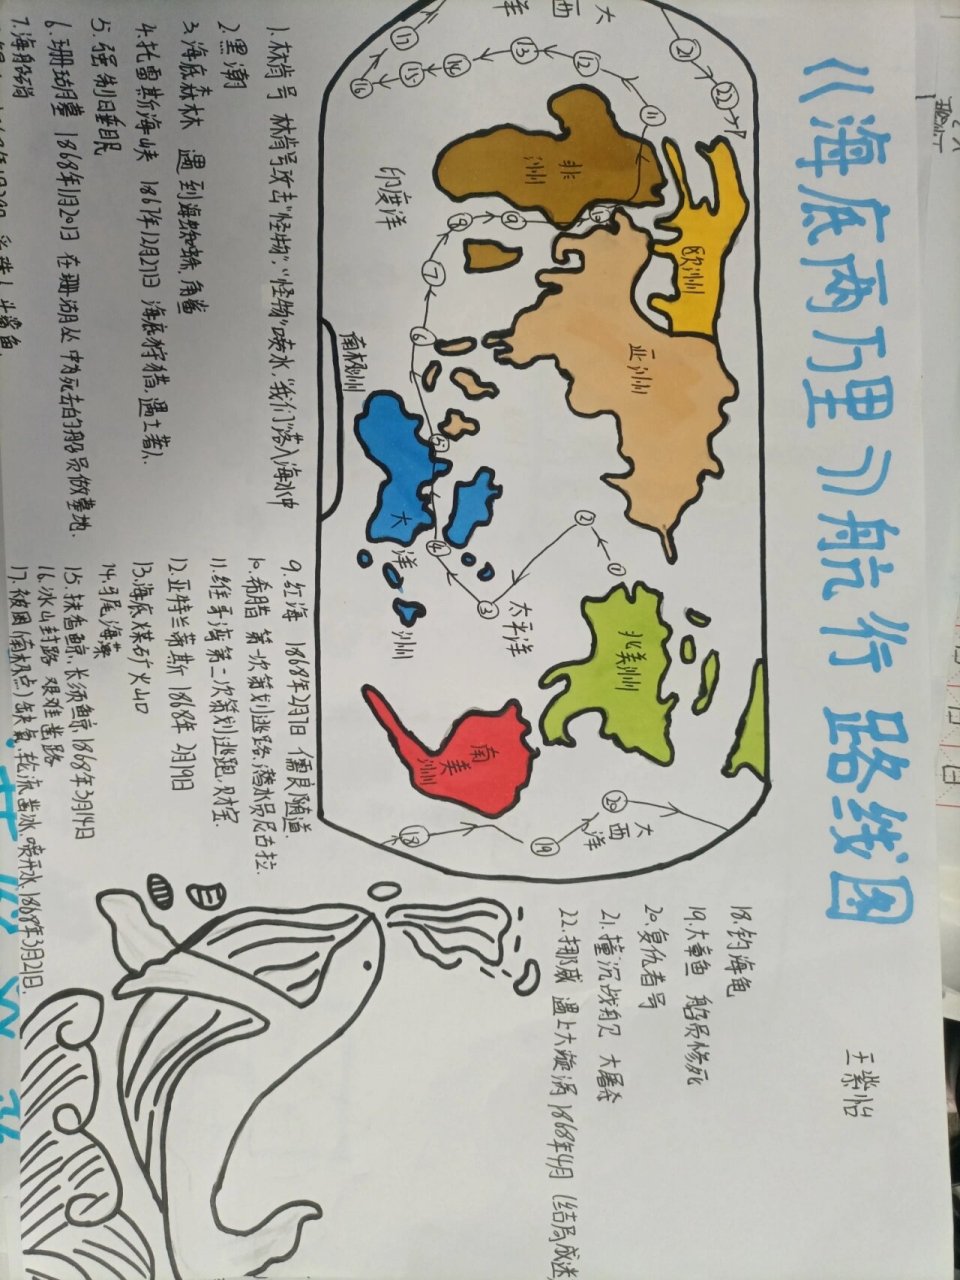 《海底两万里》航行路线图
王紫怡
大西洋
非洲
欧洲
亚洲
印度洋
南极洲
大洋洲
太平洋
北美洲
南美洲
大西洋
1 2 3 4 5 6 7 8 9 10 11 12 13 14 15 16 17 18 19 20 21 22
1. 林肯号 林肯号攻击"怪物","怪物"喷水,"我们"落入海水中
2. 黑潮
3. 海底森林 遇到海蜘蛛、角鲨
4. 托雷斯海峡 1867年12月27日 海底狩猎,遇土著人.
5. 强制睡眠
6. 珊瑚墓 1868年1月20日 在珊瑚丛中为死去的船员做墓地.
7. 海船端
9. 红海 1868年2月7日 儒艮,隧道.
10. 希腊 第一次策划逃路,潜水员尼古拉.
11. 维哥湾 第二次策划逃跑,财宝.
12. 亚特兰蒂斯 1868年2月19日
13. 海底煤矿火山口
14. 马尾海藻
15. 抹香鲸、长须鲸 1868年3月14日
16. 冰山封路 艰难凿路
17. 被困(南极点)缺氧,轮流凿冰,喷开水,1868年3月21日.
18. 钓海龟
19. 大章鱼 船员惨死
20. 复仇者号
21. 撞沉战舰 大屠杀
22. 挪威 遇上大漩涡 1868年4月 (结局成迷